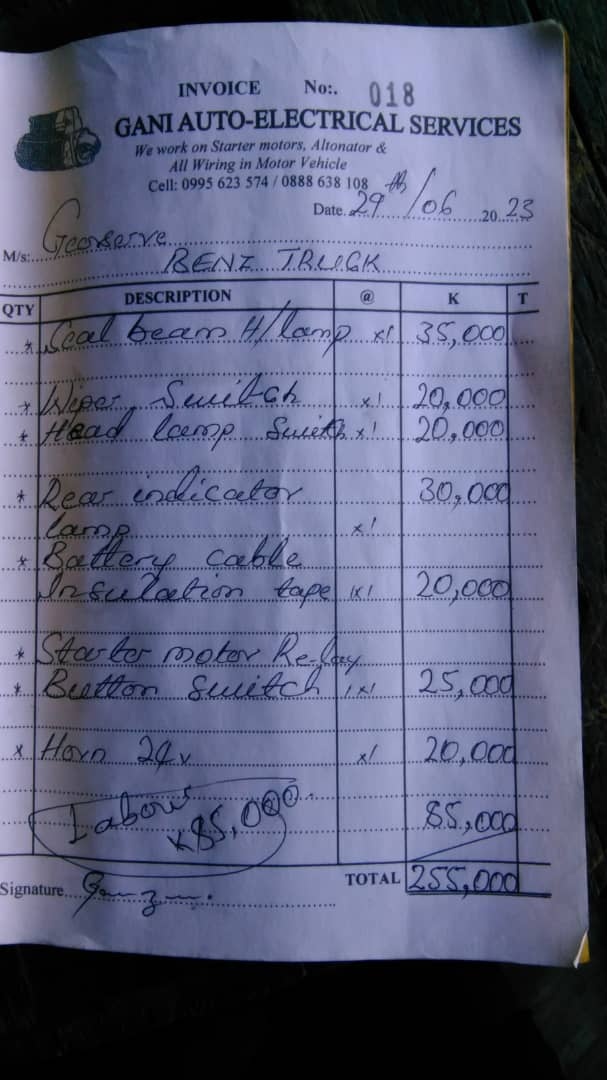 INVOICE No:. 018
GANI AUTO-ELECTRICAL SERVICES
We work on Starter motors, Altonator &
All Wiring in Motor Vehicle
Cell: 0995 623 574 / 0888 638 108
Date. 29th/06 20 23
M/s: Geoserve
BENZ TRUCK
QTY DESCRIPTION @ K T
* Seal beam H/lamp x1 35,000
* Wiper Switch x1 20,000
* Head lamp Switch x1 20,000
* Rear indicator 30,000
lamp x1
* Battery cable
Insulation tape 1x1 20,000
* Starter motor Relay
* Button Switch 1x1 25,000
* Horn 24v x1 20,000
Labour
K85,000 85,000
TOTAL 255,000
Signature